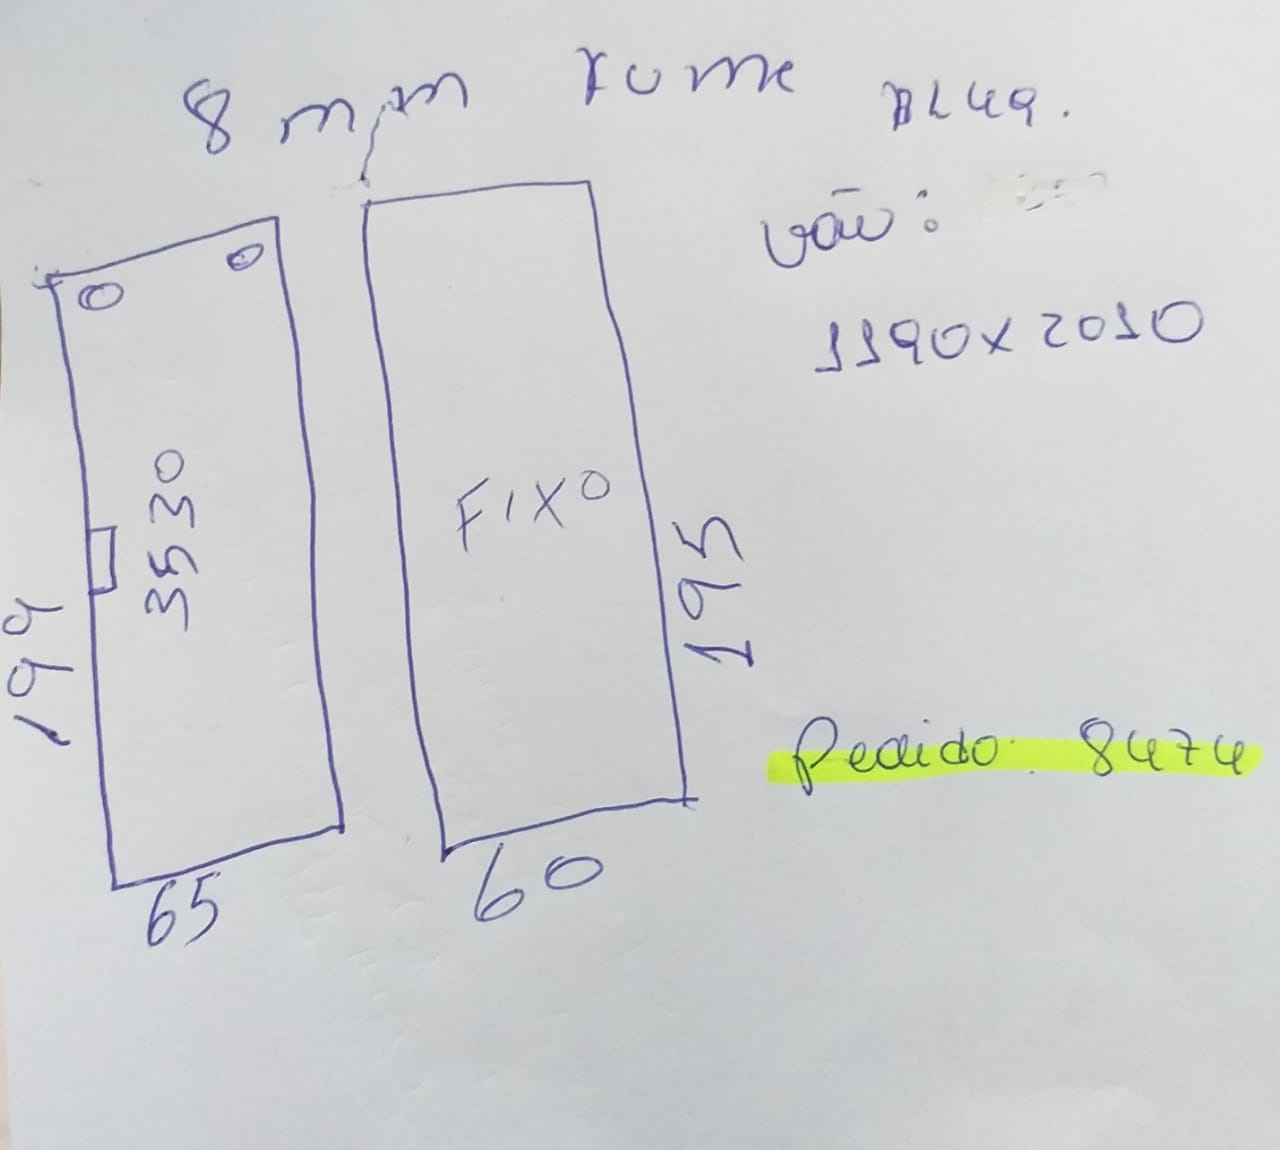 8 mm fume
vão:
1190x2010
3530
FIXO
199
195
65
60
Pedido: 8474